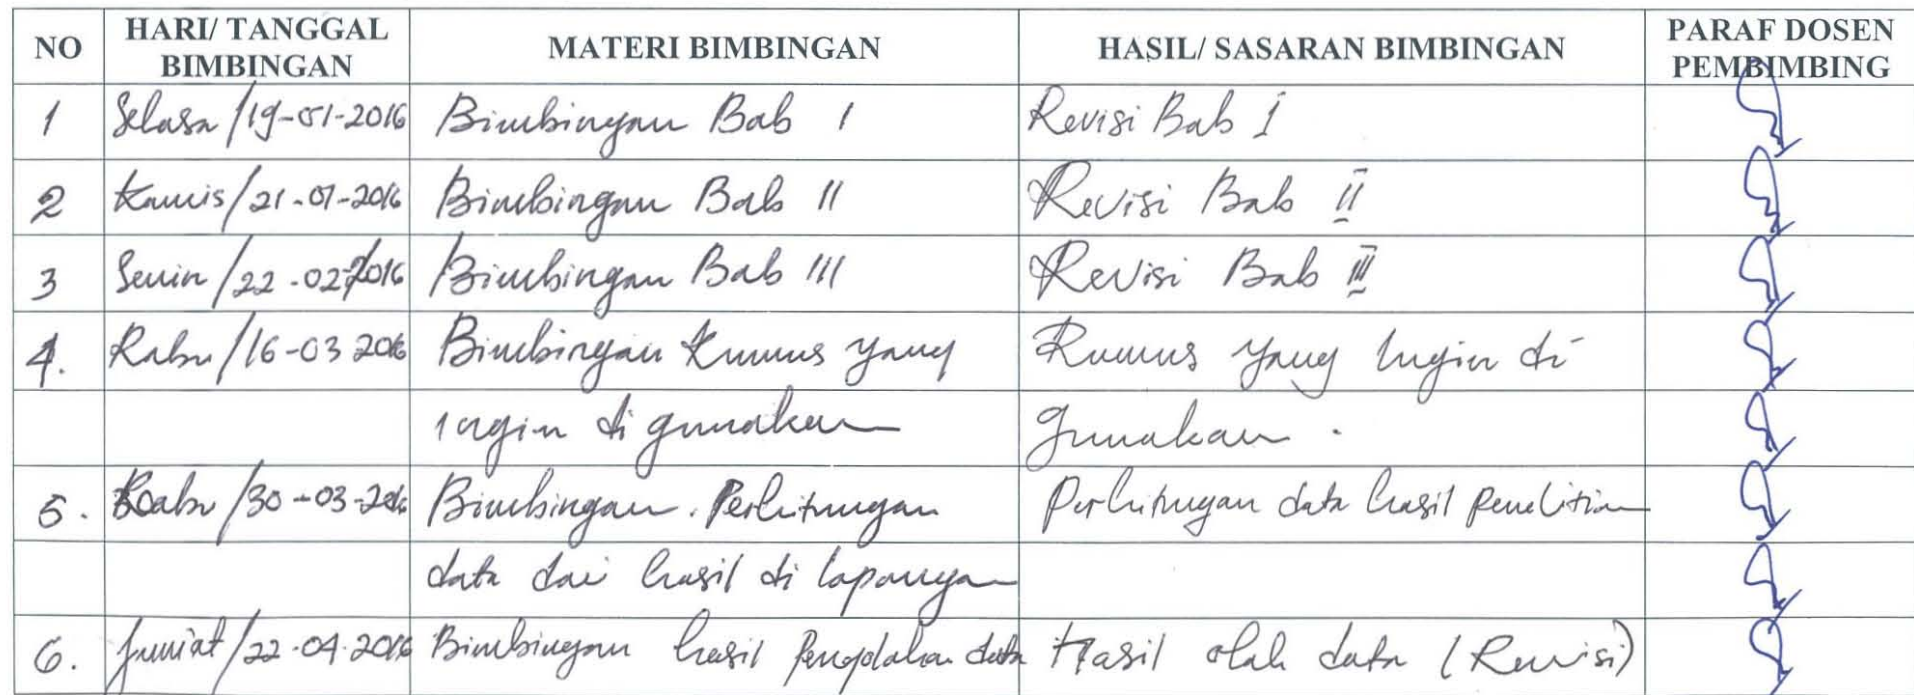 NO HARI/ TANGGAL BIMBINGAN MATERI BIMBINGAN HASIL/ SASARAN BIMBINGAN PARAF DOSEN PEMBIMBING
1 Selasa /19-01-2016 Bimbingan Bab I Revisi Bab I
2 Kamis/21-01-2016 Bimbingan Bab II Revisi Bab II
3 Senin /22-02-2016 Bimbingan Bab III Revisi Bab III
4. Rabu /16-03 2016 Bimbingan Rumus yang Rumus yang Ingin di
ingin di gunakan gunakan.
5. Rabu /30-03-2016 Bimbingan. Perhitungan Perhitungan data hasil penelitian
data dai hasil di lapangan
6. Jum'at /22-04-2016 Bimbingan hasil Pengolahan data Hasil olah data (Revisi)